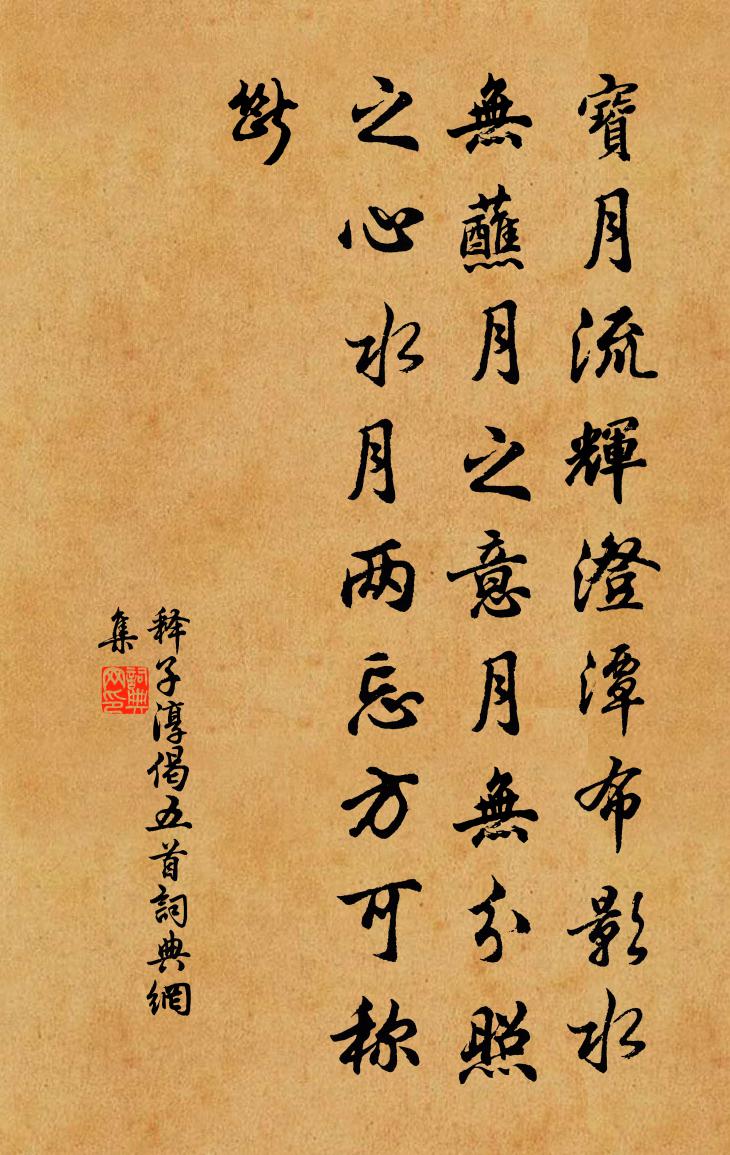 寶月流輝澄潭布影水
無蘸月之意月無分照
之心水月两忘方可称
斷
释子淳偈五首詞典網
集
詞典
网印